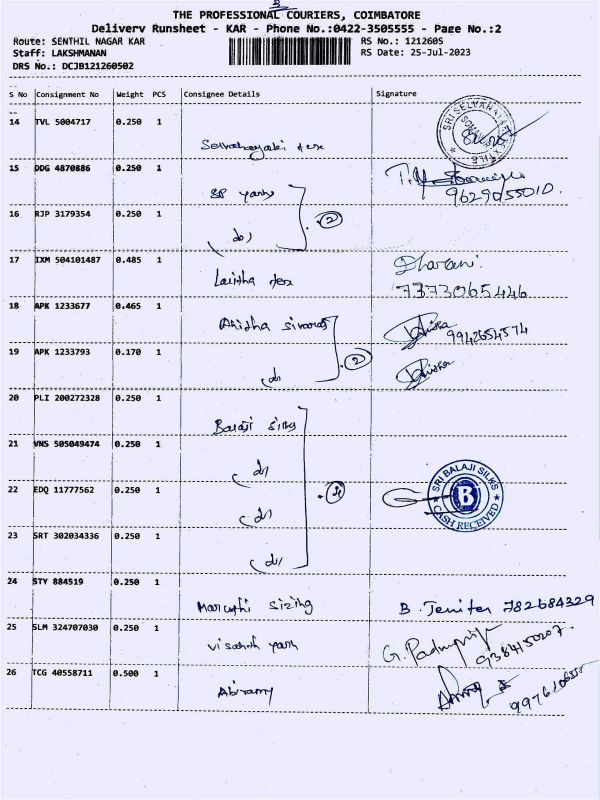 THE PROFESSIONAL COURIERS, COIMBATORE
Delivery Runsheet - KAR - Phone No.:0422-3505555 - Page No.:2
Route: SENTHIL NAGAR KAR
RS No.: 1212605
Staff: LAKSHMANAN
RS Date: 25-Jul-2023
DRS No.: DCJB121260502
S No Consignment No Weight PCS Consignee Details Signature
14 TVL 5004717 0.250 1
15 DDG 4870886 0.250 1
SP yarns
9629055010.
16 RJP 3179354 0.250 1
(do) 2
17 IXM 504101487 0.485 1
Lalitha tex
Dharani
7373065446
18 APK 1233677 0.465 1
9942654574
19 APK 1233793 0.170 1
do 2
20 PLI 200272328 0.250 1
Balaji
21 VNS 505049474 0.250 1
(do)
22 EDQ 11777562 0.250 1
(do) 4
SRI BALAJI SILKS
B
CASH RECEIVED
23 SRT 302034336 0.250 1
(do)
24 STY 884519 0.250 1
Maruthi sizing
B. Jenifer 782684329
25 SLM 324707030 0.250 1
G. Padmapriya
26 TCG 40558711 0.500 1
Abiramy